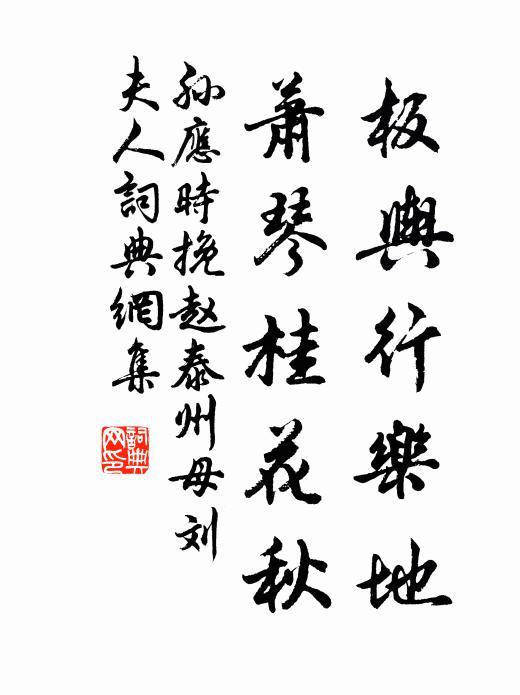 板輿行樂地
蕭琴桂花秋
孙應時挽赵泰州母刘
夫人詞典網集
詞典网印